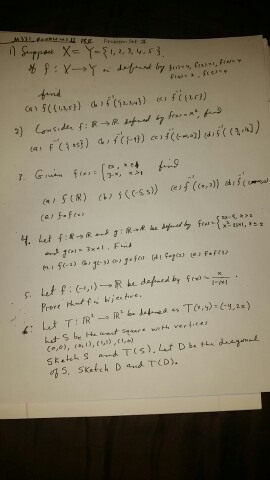 Problem Set II
1) Suppose X = Y = {1, 2, 3, 4, 5}.
If f: X → Y is defined by f(1)=4, f(2)=1, f(3)=4
f(4)=2, f(5)=4
find
(a) f({1,3,5}) (b) f⁻¹({2,3,4}) (c) f⁻¹({3,5})
2) Consider f: R → R defined by f(x)=x², find
(a) f⁻¹({25}) (b) f⁻¹({-9}) (c) f⁻¹((-∞,0]) (d) f⁻¹([9,16])
3. Given f(x) = { 2x, x<4 find
(a) f(R) (b) f((-5,5)) (c) f⁻¹((0,2)) (d) f⁻¹
(e) f∘f(x)
4. Let f: R → R and g: R → R be defined by f(x) =
and g(x) = 3x+1. Find
(a) f(-2) (b) g(-3) (c) g∘f(x) (d) f∘g(x) (e) f∘f(x)
5. Let f: (-1,1) → R be defined by f(x) = x/(1-|x|).
Prove that f is bijective.
6. Let T: R² → R² be defined as T(x,y) = (-y, 2x)
Let S be the unit square with vertices
(0,0), (0,1), (1,1), (1,0)
Sketch S and T(S). Let D be the diagonal
of S. Sketch D and T(D).